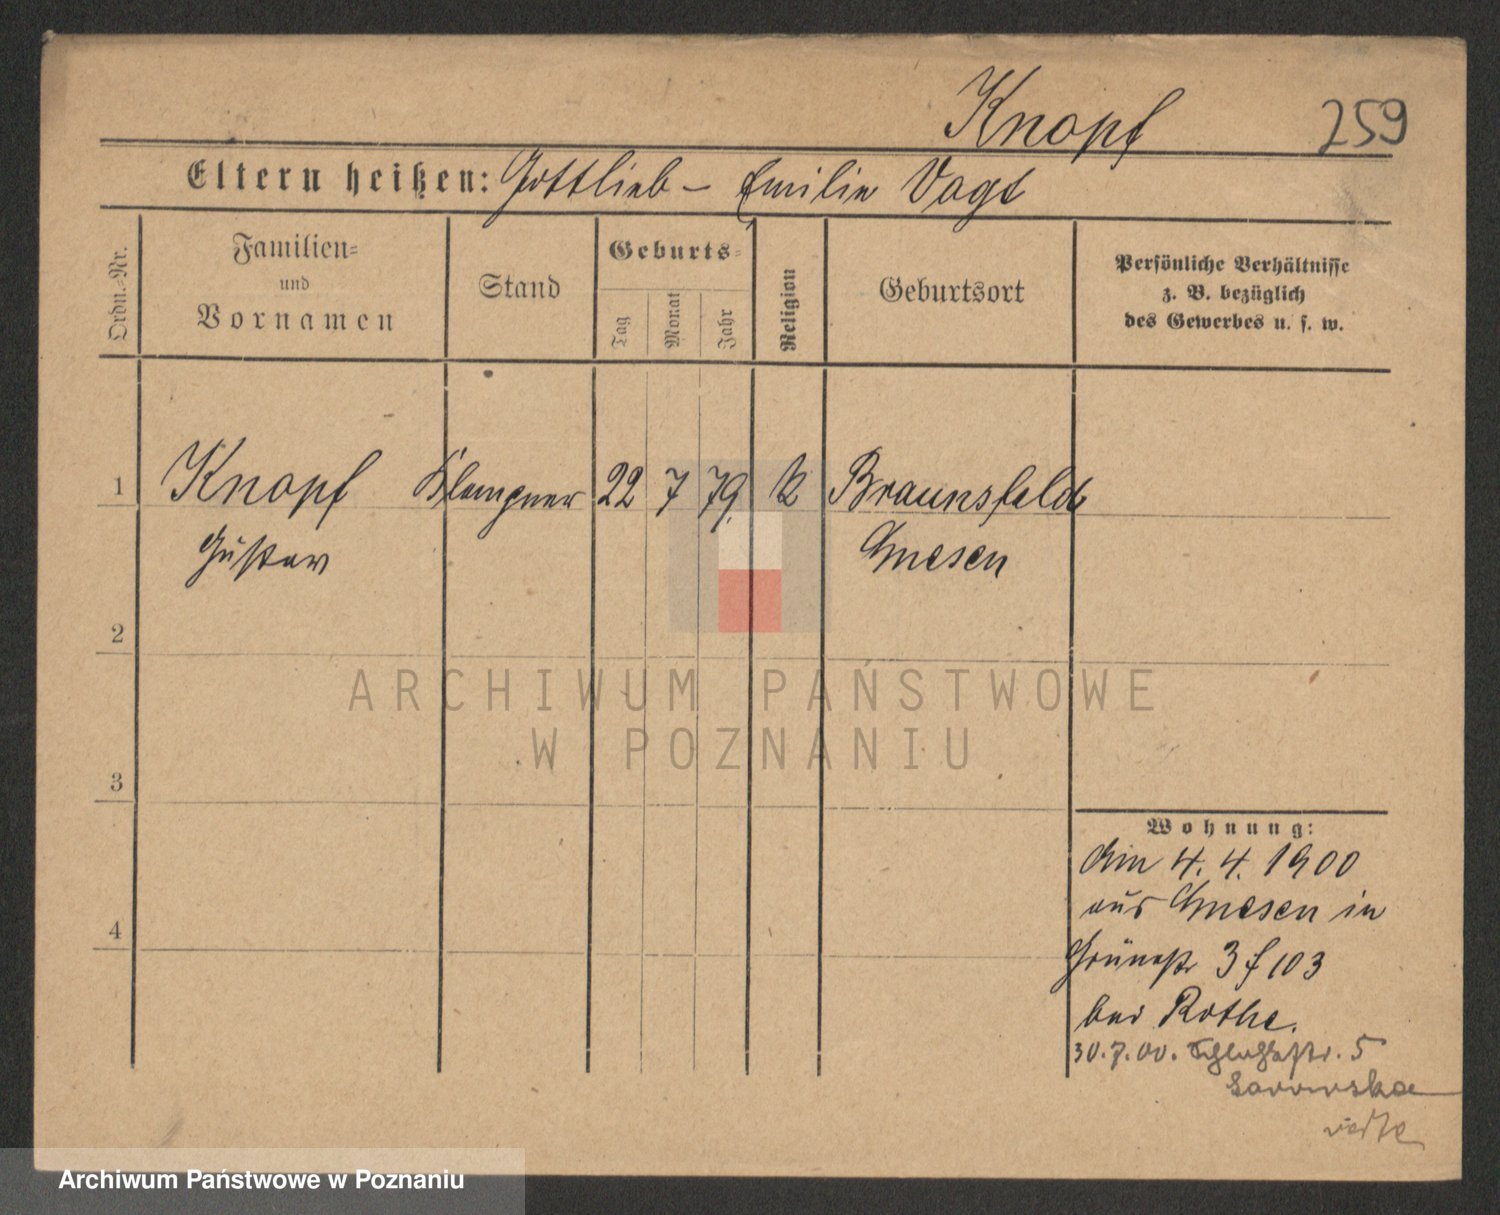 Knopf 259
Eltern heißen: Gottlieb – Emilie Vogt
Ordn.-Nr.
Familien-
und
Vornamen
Stand
Geburts-
Tag
Monat
Jahr
Religion
Geburtsort
Persönliche Verhältnisse
z. B. bezüglich
des Gewerbes u. s. w.
1 Knopf Klempner 22 7 79 k Braunsfelde
Gustav Gnesen
2
ARCHIWUM PAŃSTWOWE
W POZNANIU
3
Wohnung:
Am 4. 4. 1900
4
aus Gnesen in
Grünestr 3 f 103
bei Rothe.
30.7.00. 5
Archiwum Państwowe w Poznaniu